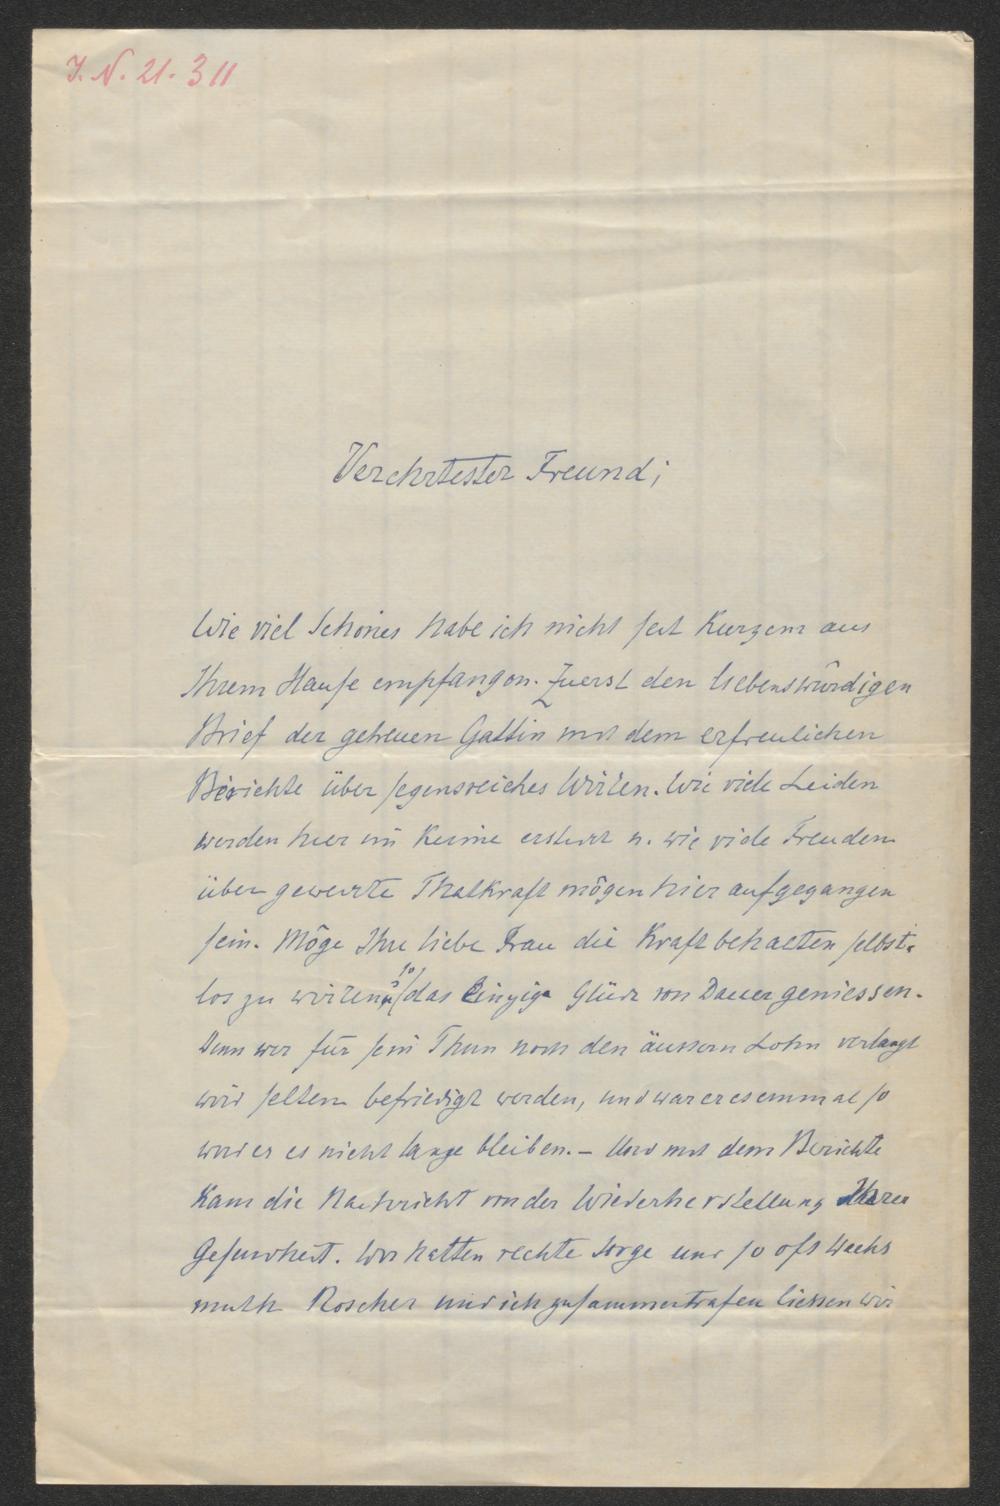 J. N. 21.311
Verehrtester Freund;
Wie viel Schönes habe ich nicht seit Kurzem aus
Ihrem Hause empfangen. Zuerst den liebenswürdigen
Brief der getreuen Gattin mit dem erfreulichen
Berichte über segensreiches Wirken. Wie viele Leiden
werden hier im Keime erstickt u. wie viele Freuden
über geweckte Thatkraft mögen hier aufgegangen
sein. Möge Ihre liebe Frau die Kraft behalten selbst-
los zu wirken u. so das einzige Glück von Dauer geniessen.
Denn wer für sein Thun noch den äussern Lohn verlangt
wird selten befriedigt werden, und war er es einmal so
wird er es nicht lange bleiben. – Und mit dem Berichte
kam die Nachricht von der Wiederherstellung Ihrer
Gesundheit. Wir hatten rechte Sorge und so oft Wachs
muth Roscher und ich zusammentrafen liessen wir